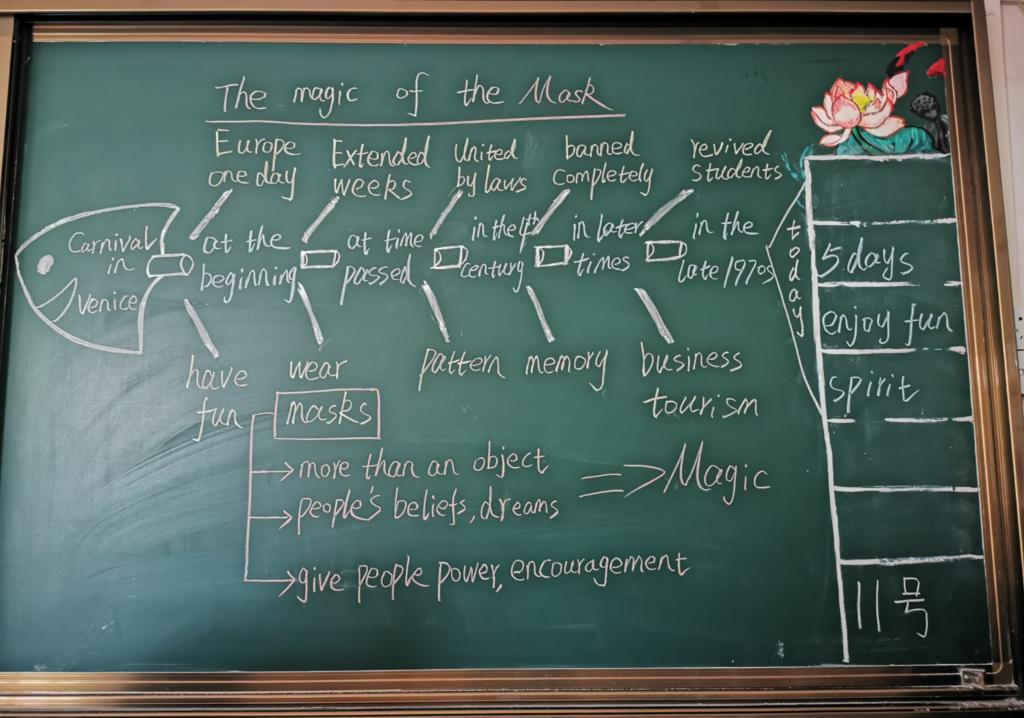 The magic of the Mask
Europe
one day
Extended
weeks
United
by laws
banned
completely
revived
students
Carnival
in
Venice
at the
beginning
at time
passed
in the
century
in later
times
in the
late 1970s
today
have
fun
wear
masks
pattern
memory
business
tourism
more than an object
people's beliefs, dreams
give people power, encouragement
=> Magic
5 days
enjoy fun
spirit
11号